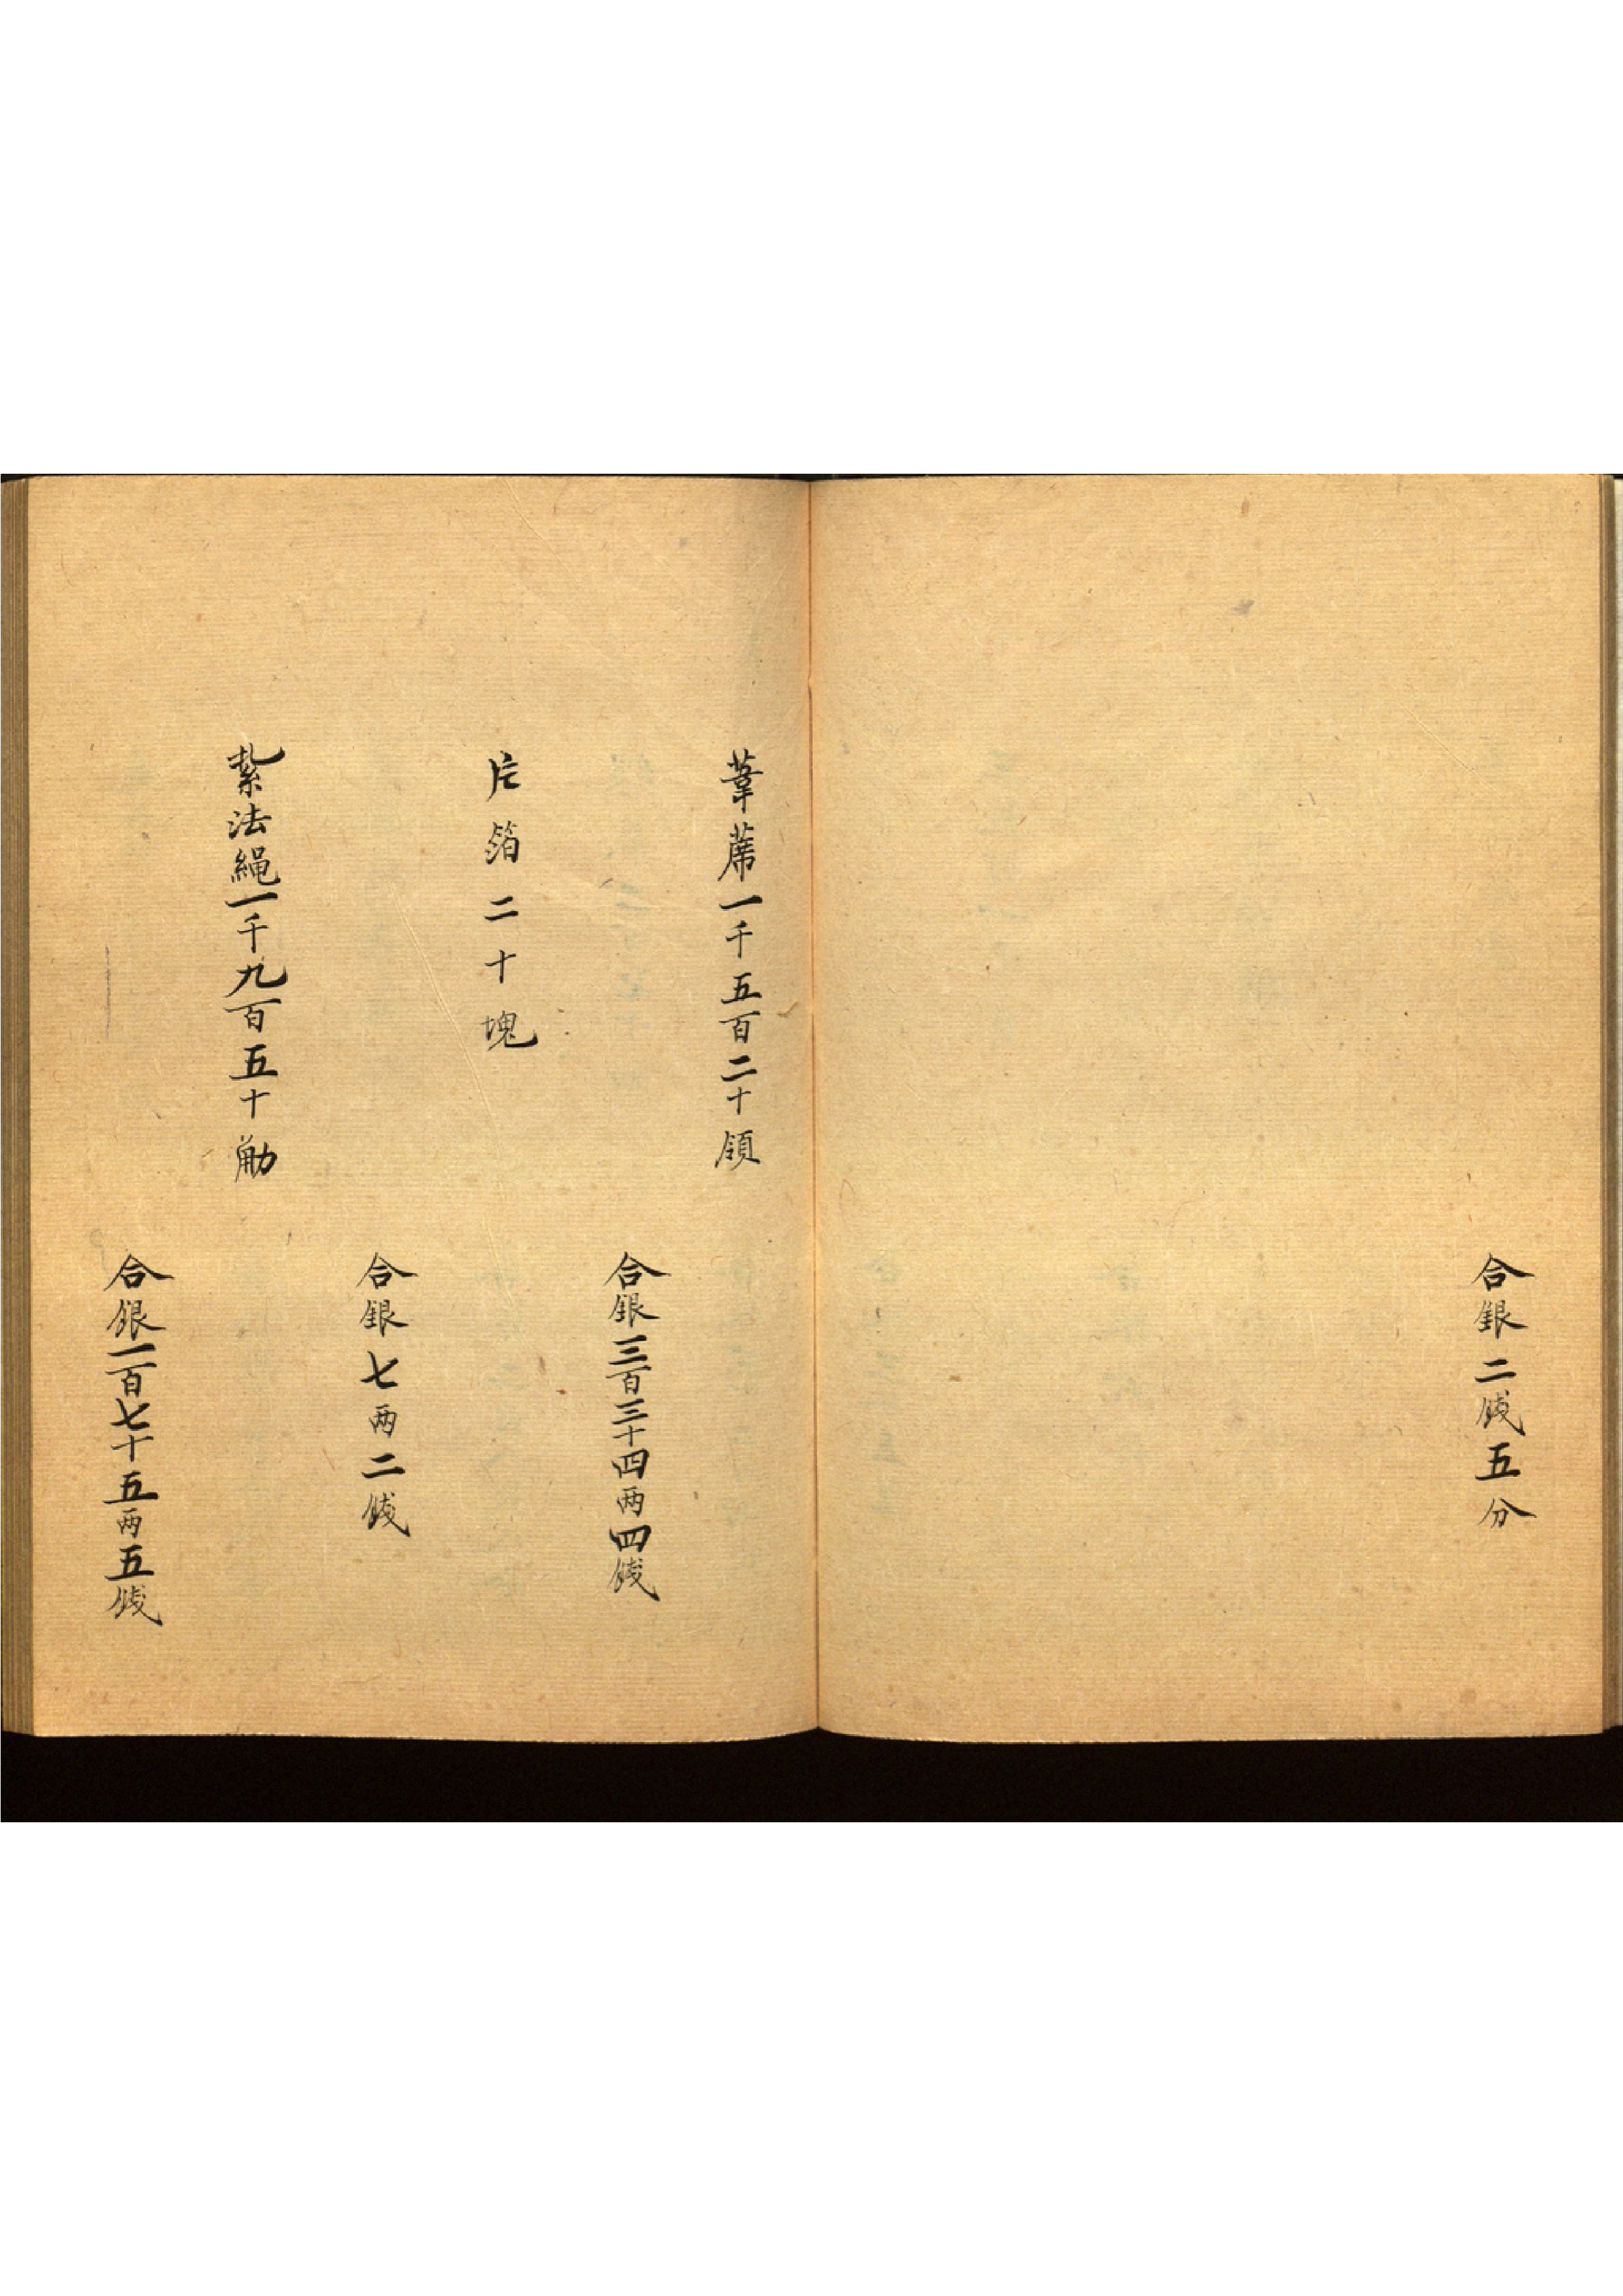 合銀二錢五分
葦蓆一千五百二十領
合銀三百三十四两四錢
片箔二十塊
合銀七两二錢
紮法繩一千九百五十觔
合銀一百七十五两五錢